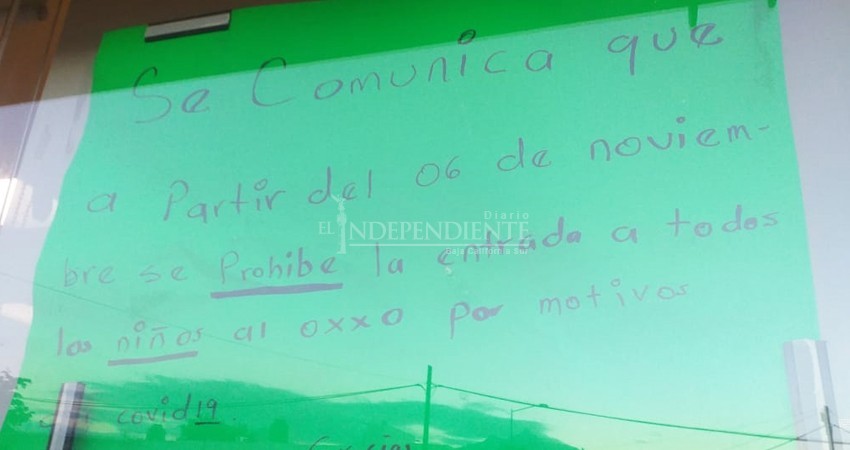 Se Comunica que
a Partir del 06 de noviem-
bre se Prohibe la entrada a todos
los niños al oxxo por motivos
covid19.
Gracias
Diario
EL INDEPENDIENTE
Baja California Sur